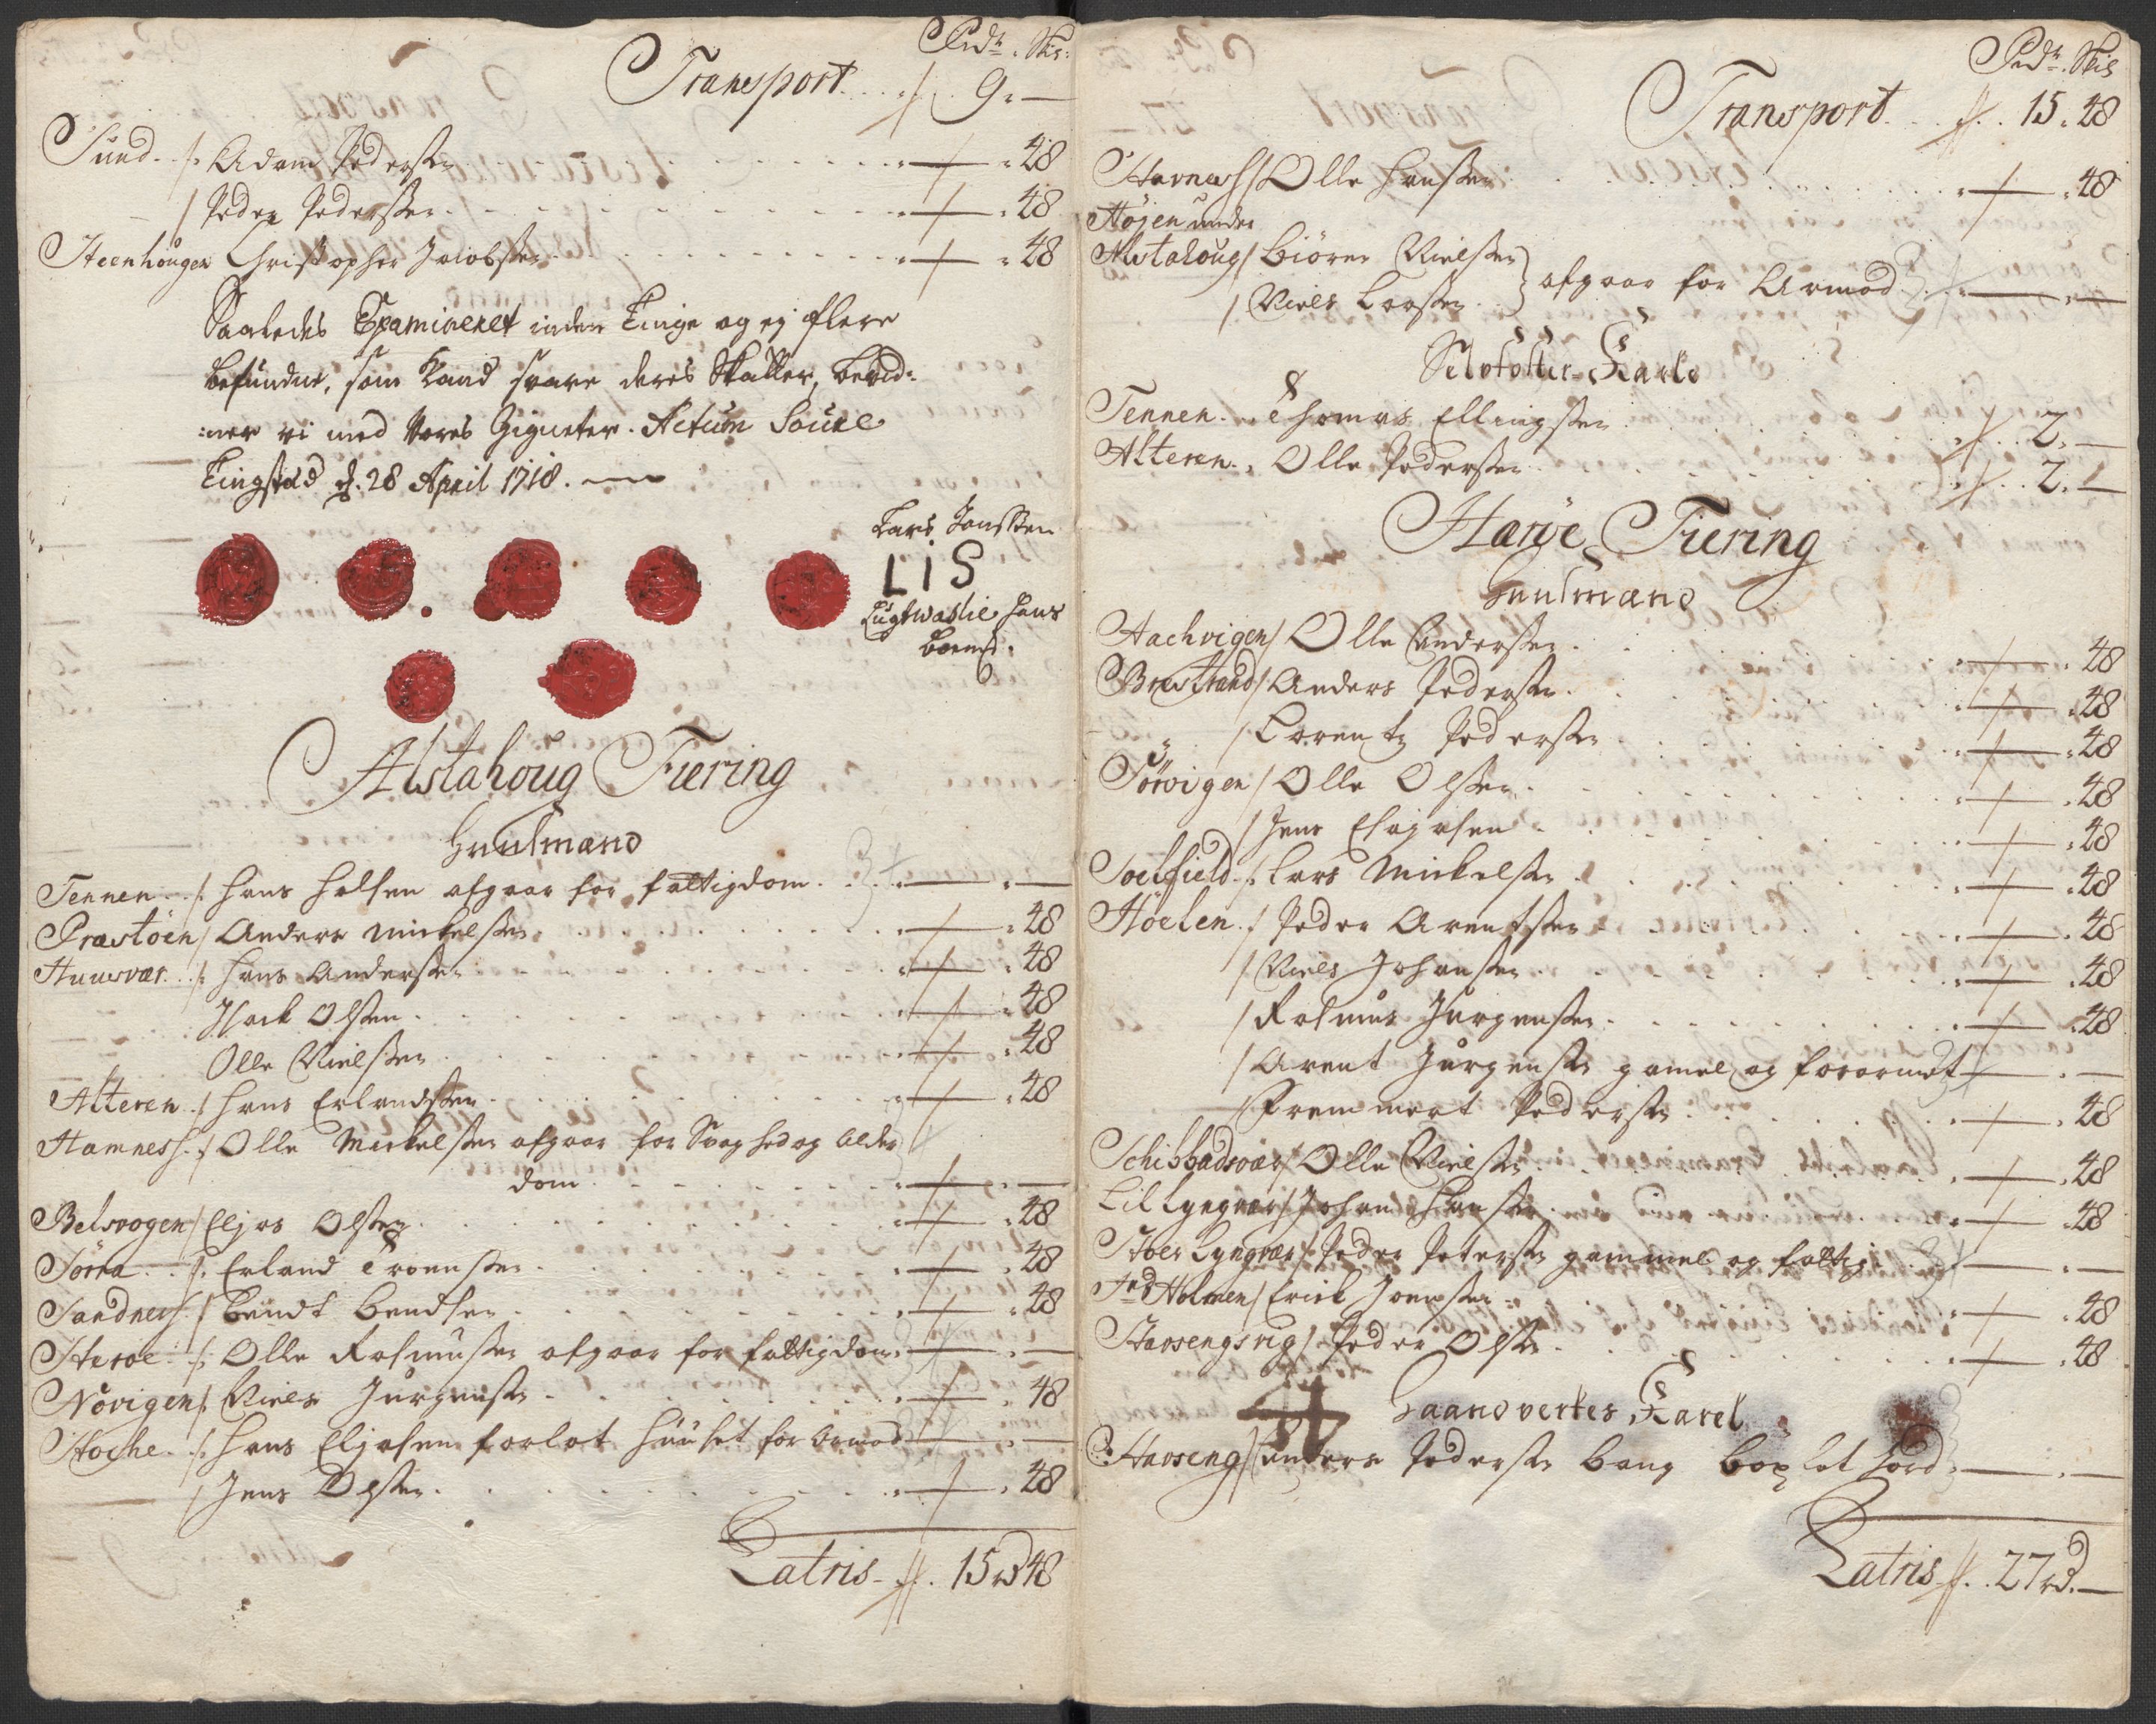 Rdr. Skr:
Transport . . . // 9. —
Sund. ./. Adam Pedersen . . . 48
/ Peder Pedersen . . . 48
Steenhougen Christopher Jacobsen . . . 48
Saaledes Examineret inden Tinge og ej flere
befunden, som kand svare deres Skatter, bevid-
:ner vi med Vores Signeter. Actum
Tingsted d. 28 April 1718.
Lars Jonssen
L I S
hans
Alstahoug Fiering
Huusmænd
Tennen ./. Hans afgaar for fattigdom . . . — . —
Præstöen / Anders Mickelsen . . . 48
Huusvær ./. Hans Andersen . . . 48
Isack Olsen . . . 48
Olle Nielsen . . . 48
Alteren ./ Hans Erlandsen . . . 48
Hamnes ./ Olle Mickelsen afgaar for Svaghed og Alder
dom . . . — . —
Belsvogen / Eljas Olsen . . . 48
Sörra ./. Erland Troensen . . . 48
Sandnes / Bendt Bendsen . . . 48
Steroe ./. Olle Rasmusen afgaar for fattigdom . — . —
Növigen /. Niels Jürgensen . . . 48
Hoche ./. Hans Eljasen forlat Huuset for Armod — . —
/ Jens Olsen . . . 48
Latris // . 15 rd 48
Rdr. Skil
Transport . . . // . 15 . 48
Havnes / Olle Hansen . . . 48
Höjen under
Alstahoug / Biören Nielsen } afgaar for Armod . . . — . —
/ Niels Larsen
Selvfolker Karle
Tennen . . Thomas Ellingsen . . . 2. —
Alteren . . Olle Pedersen . . . 2. —
Haröe Fiering
Huusmænd
Aachvigen / Olle Andersen . . . 48
Brestrand / Anders Pedersen . . . 48
" / Lorentz Pedersen . . . 48
Sörvigen / Olle Olsen . . . 48
/ Jens Eliasen . . . 48
Soelfield ./. Lars Mickelsen . . . 48
Höelen . / Peder Arentsen . . . 48
/ Niels Johansen . . . 48
/ Rasmus Jürgensen . . . 48
/ Arent Jürgensen gamel og forarmet — . —
/ Fremmert Pedersen . . . 48
Schibbadsvær / Olle Nielsen . . . 48
Lil Lyngvær / Johan Hansen . . . 48
Stoer Lyngvær / Peder Petersen gammel og fattig . . — . —
Holmen / Erick Joensen . . . 48
Haosengsvig / Peder Olsen . . . 48
Haandverkes Karel
Haoseng / Anders Pedersen Bang . . . — . —
Latris // . 27 rd. —